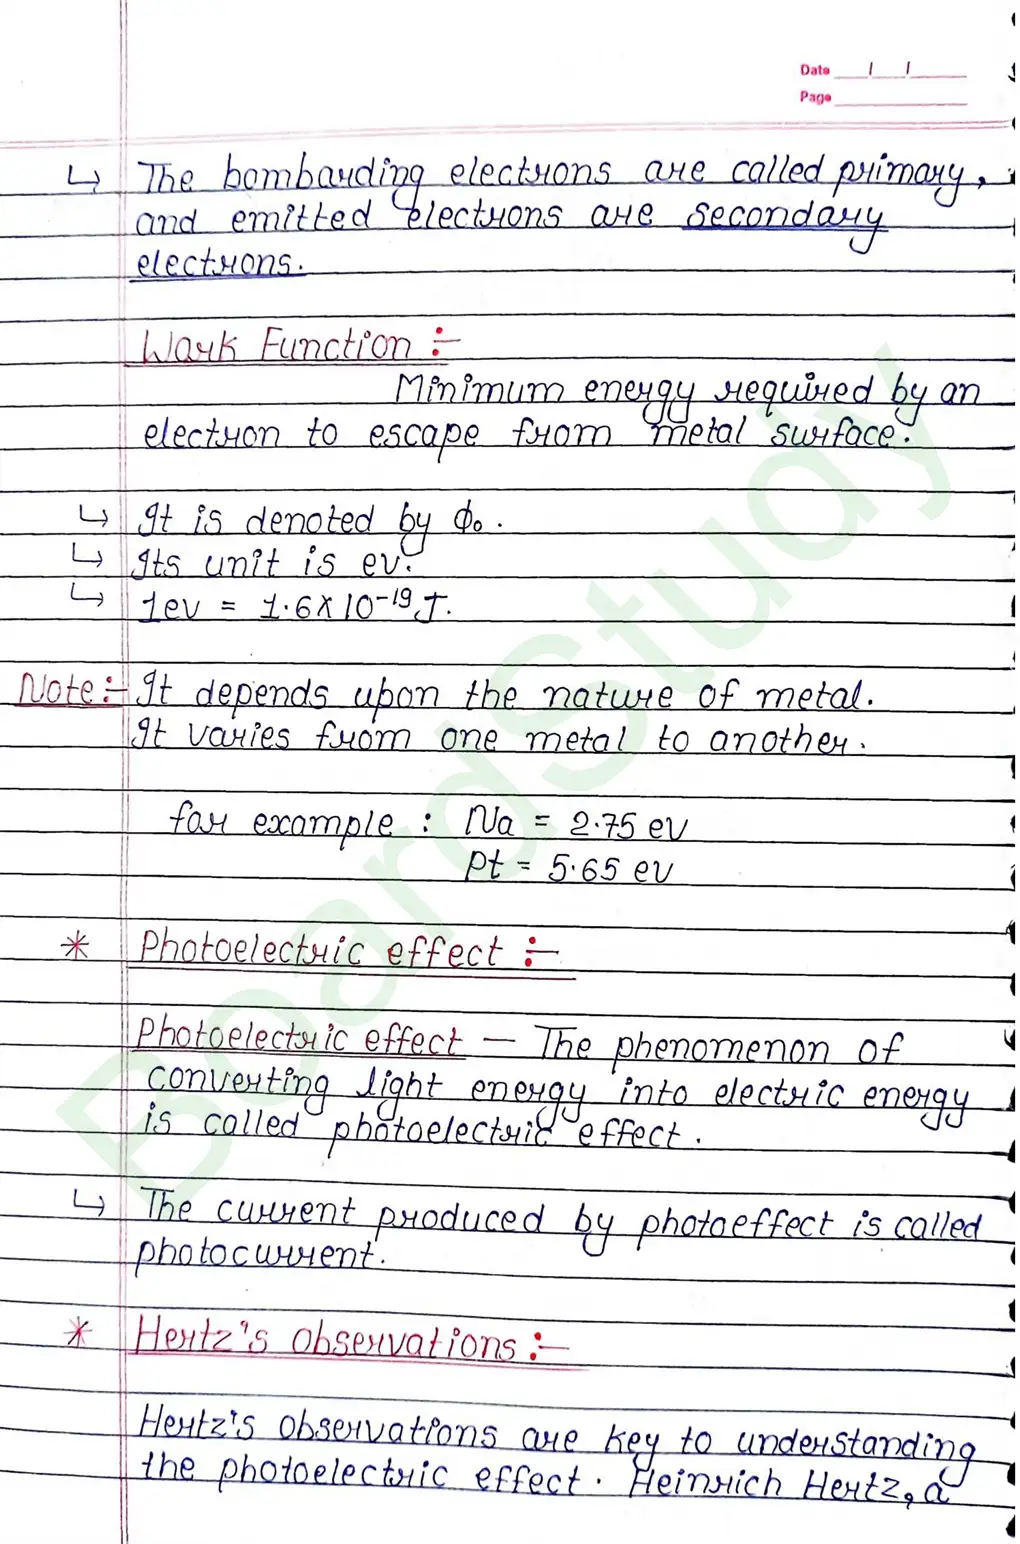 Date
Page
↳ The bombarding electrons are called primary,
and emitted electrons are secondary
electrons.
Work Function :-
Minimum energy required by an
electron to escape from metal surface.
↳ It is denoted by ϕ₀.
↳ Its unit is ev.
↳ 1ev = 1.6×10⁻¹⁹J.
Note:- It depends upon the nature of metal.
It varies from one metal to another.
for example : Na = 2.75 ev
Pt = 5.65 ev
* Photoelectric effect :-
Photoelectric effect — The phenomenon of
converting light energy into electric energy
is called photoelectric effect.
↳ The current produced by photoeffect is called
photocurrent.
* Hertz's observations :-
Hertz's observations are key to understanding
the photoelectric effect. Heinrich Hertz, a
BoardStudy